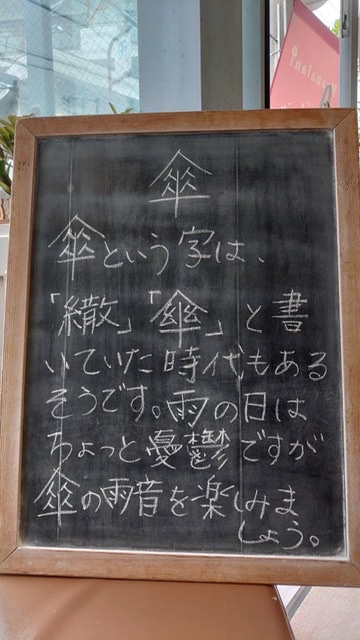 傘
傘という字は、
「繖」「傘」と書
いていた時代もある
そうです。雨の日は
ちょっと憂鬱ですが
傘の雨音を楽しみま
しょう。